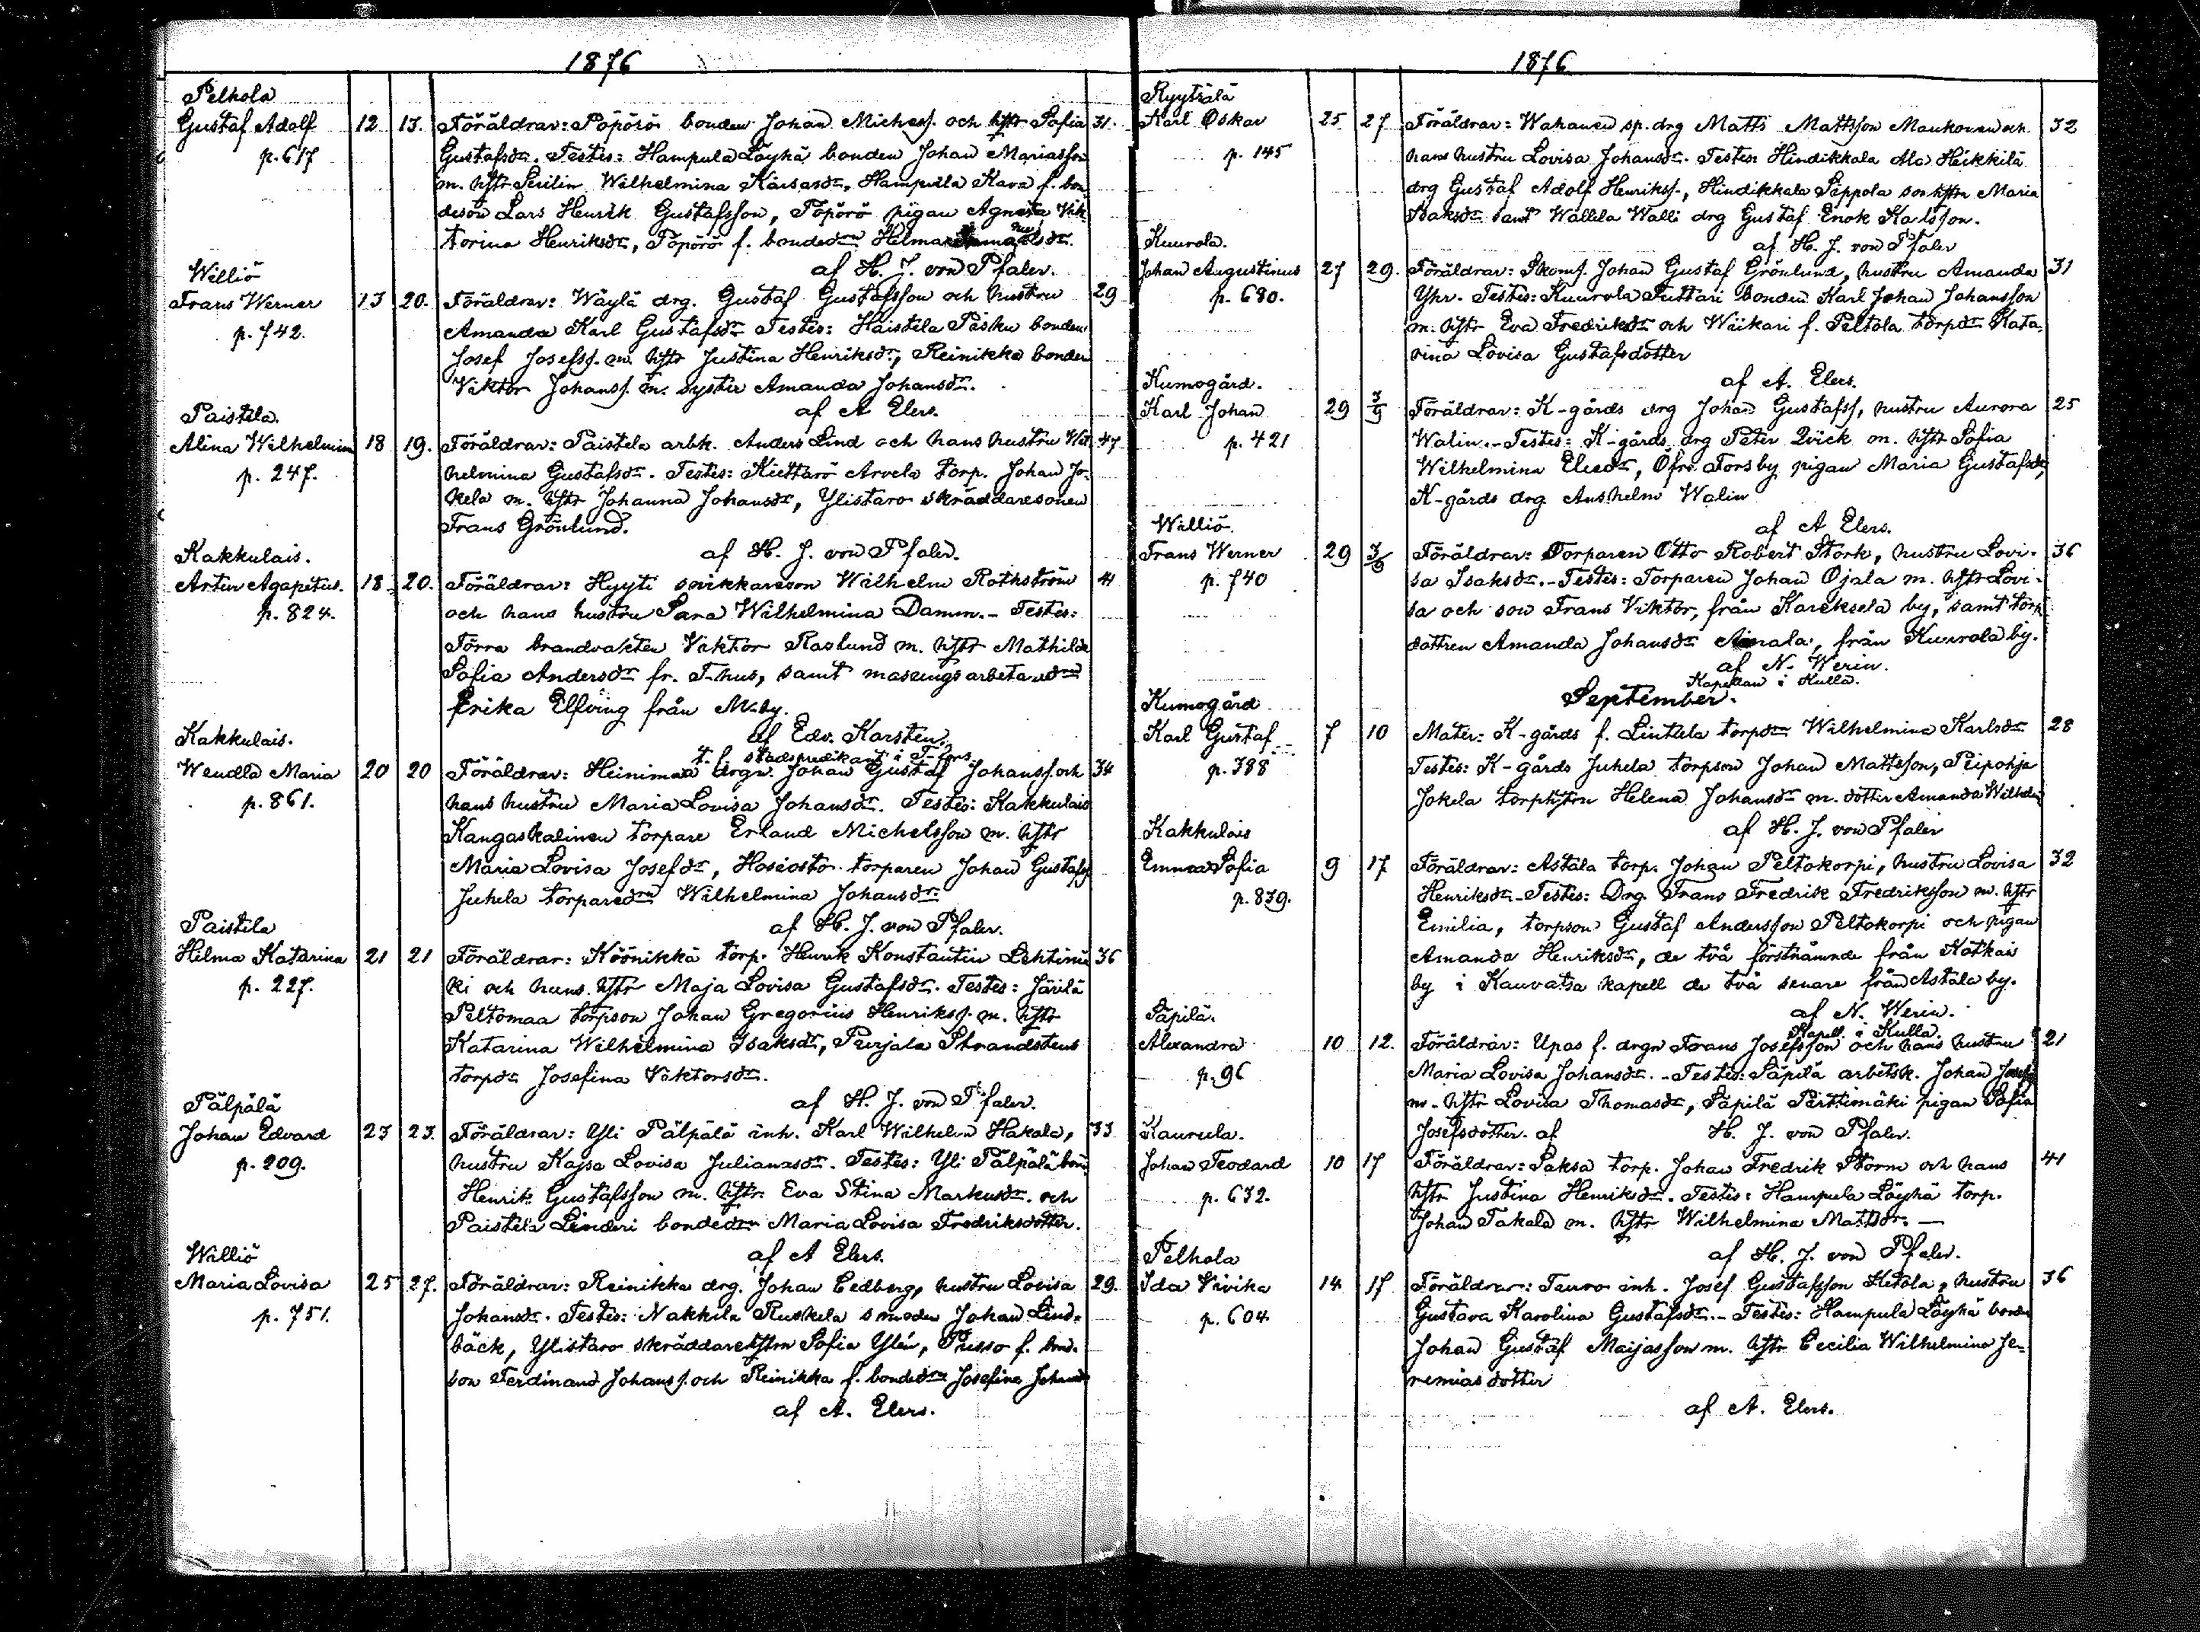 1876
Pelhola
Gustaf Adolf 12 13. Föräldrar: Pöpörö bonden Johan Michelss. och hstr Sofia 31.
p. 617 Gustafsdr. Testes: Hampula Löyhä bonden Johan Mariasson
m. hstr Serilin Wilhelmina Kaisasdr, Hampula Kara f. bon
deson Lars Henrik Gustafsson, Pöpörö pigan Agneta Vik
torina Henriksdr, Pöpörö f. bondedrn Helma
af H. J. von Pfaler.
Williö
Frans Werner 13 20. Föräldrar: Wäylä drg. Gustaf Gustafsson och hustru 29
p. 742. Amanda Karl Gustafsdr Testes: Haistila Pasku bonden
Josef Josefss. m. hstr Justina Henriksdr, Reinikka bonden
Viktor Johanss. m. syster Amanda Johansdr.
af A Elers.
Paistila.
Alina Wilhelmina 18 19. Föräldrar: Paistila arbk. Anders Lind och hans hustru Wil 47.
p. 247. helmina Gustafsdr. Testes: Kiettarö Arvela torp. Johan Jo-
kela m. hstr Johanna Johansdr, Ylistaro skräddaresonen
Frans Grönlund.
af H. J. von Pfaler.
Kakkulais.
Artur Agapetus. 18 20. Föräldrar: Hyyti snikkareson Wilhelm Rothström 41
p. 824. och hans hustru Sara Wilhelmina Damm. - Testes:
Törra brandvakten Viktor Roslund m. hstr Mathilda
Sofia Andersdr fr. T-hus, samt masungsarbetaredrn
Erika Elfving från M-by.
af Edv. Karsten.
t. f. stadspredikant i T-fors.
Kakkulais.
Wendla Maria 20 20 Föräldrar: Heinimaa drgn. Johan Gustaf Johanss. och 34
p. 861. hans hustru Maria Lovisa Johansdr. Testes: Kakkulais
Kangaskalinen torpare Erland Michelsson m. hstr
Maria Lovisa Josefsdr, Hosiosto torparen Johan Gustafss
Juhela torparedrn Wilhelmina Johansdr
af H. J. von Pfaler.
Paistila
Hilma Katarina 21 21 Föräldrar: Köönikkä torp. Henrik Konstantin Lehtimä 36
p. 227. ki och hans hstr Maja Lovisa Gustafsdr. Testes: Järilä
Peltomaa torpson Johan Gregorius Henrikss. m. hstr
Katarina Wilhelmina Isaksdr, Purjala Strandstens
torpdr Josefina Viktorsdr.
af H. J. von Pfaler.
Pälpälä
Johan Edvard 23 23. Föräldrar: Yli Pälpälä inh. Karl Wilhelm Hakala, 33
p. 209. hustru Kajsa Lovisa Juliansdr. Testes: Yli Pälpälä bon
Henrik Gustafsson m. hstr. Eva Stina Markusdr. och
Paistila Linderi bondedr Maria Lovisa Fredriksdotter.
af A Elers.
Williö
Maria Lovisa 25 27. Föräldrar: Reinikka drg. Johan Cedberg, hustru Lovisa 29.
p. 751. Johansdr. Testes: Nakkila Ruskela smeden Johan Lind-
bäck, Ylistaro skräddarehstrn Sofia Ylén, Prisso f. bond-
son Ferdinand Johanss. och Reinikka f. bondedrn Josefina Johansdr
af A. Elers.
1876
Ryytsälä
Karl Oskar 25 27 Föräldrar: Wahanen sp. drg Matts Mattsson Maukonen och 32
p. 145 hans hustru Lovisa Johansdr. Testes: Hindikkala Ala Heikkilä
drg Gustaf Adolf Henrikss., Hindikkala Seppola sonhstrn Maria
Isaksdr samt Wallila Walli drg Gustaf Enok Karlsson.
af H. J. von Pfaler
Kuurola.
Johan Augustinus 27 29. Föräldrar: Skom. Johan Gustaf Grönlund, hustru Amanda 31
p. 680. Yhr. Testes: Kuurola Tuttari bonden Karl Johan Johansson
m. hstr Eva Fredriksdr och Wiikari f. Peltola torpdr Kata-
rina Lovisa Gustafsdotter
af A. Elers.
Kumogård.
Karl Johan 29 3/9 Föräldrar: K-gårds drg Johan Gustafss, hustru Aurora 25
p. 421 Walin. - Testes: K-gårds drg Peter Qvick m. hstr Sofia
Wilhelmina Eliedr, Öfre Forsby pigan Maria Gustafsdr,
K-gårds drg Anshelm Walin
af A Elers.
Williö.
Frans Werner 29 3/9 Föräldrar: Torparen Otto Robert Stork, hustru Lovi- 36
p. 740 sa Isaksdr. - Testes: Torparen Johan Ojala m. hstr Lovi-
sa och son Frans Viktor, från Kareksela by, samt torp
dottren Amanda Johansdr Ainala, från Kuurola by.
af N. Werin.
Kapellan i Kulla.
September.
Kumogård
Karl Gustaf 7 10 Mater: K-gårds f. Lintula torpdr Wilhelmina Karlsdr 28
p. 388 Testes: K-gårds Juhela torpson Johan Mattsson, Peipohja
Jokela torphstru Helena Johansdr m. dotter Amanda Wilhelm
af H. J. von Pfaler
Kakkulais
Emma Sofia 9 17 Föräldrar: Astala torp. Johan Peltokorpi, hustru Lovisa 32
p. 839. Henriksdr - Testes: Drg. Frans Fredrik Fredriksson m. hstr
Emilia, torpson Gustaf Andersson Peltokorpi och pigan
Amanda Henriksdr, de två förstnämnde från Kötkais
by i Kauvatsa kapell de två senare från Astala by.
af N. Werin.
Kapell. i Kulla.
Säpilä.
Alexandra 10 12. Föräldrar: Upas f. drgn Frans Josefsson och hans hustru 21
p. 96 Maria Lovisa Johansdr. - Testes: Säpilä arbetsk. Johan Josefss
m. hstr Lovisa Thomasdr, Säpilä Perttimäki pigan Sofia
Josefsdotter. af H. J. von Pfaler.
Kaurula.
Johan Teodard 10 17 Föräldrar: Saksa torp. Johan Fredrik Storm och hans 41
p. 632. hstr Justina Henriksdr. Testes: Hampula Löyhä torp.
Johan Takala m. hstr Wilhelmina Mattsdr. —
af H. J. von Pfaler.
Pelhola
Ida Vivika 14 17 Föräldrar: Tauro inh. Josef Gustafsson Hietala, hustru 36
p. 604 Gustava Karolina Gustafsdr. - Testes: Hampula Löyhä bonde
Johan Gustaf Maijasson m. hstr Cecilia Wilhelmina Je-
remiasdotter
af A. Elers.